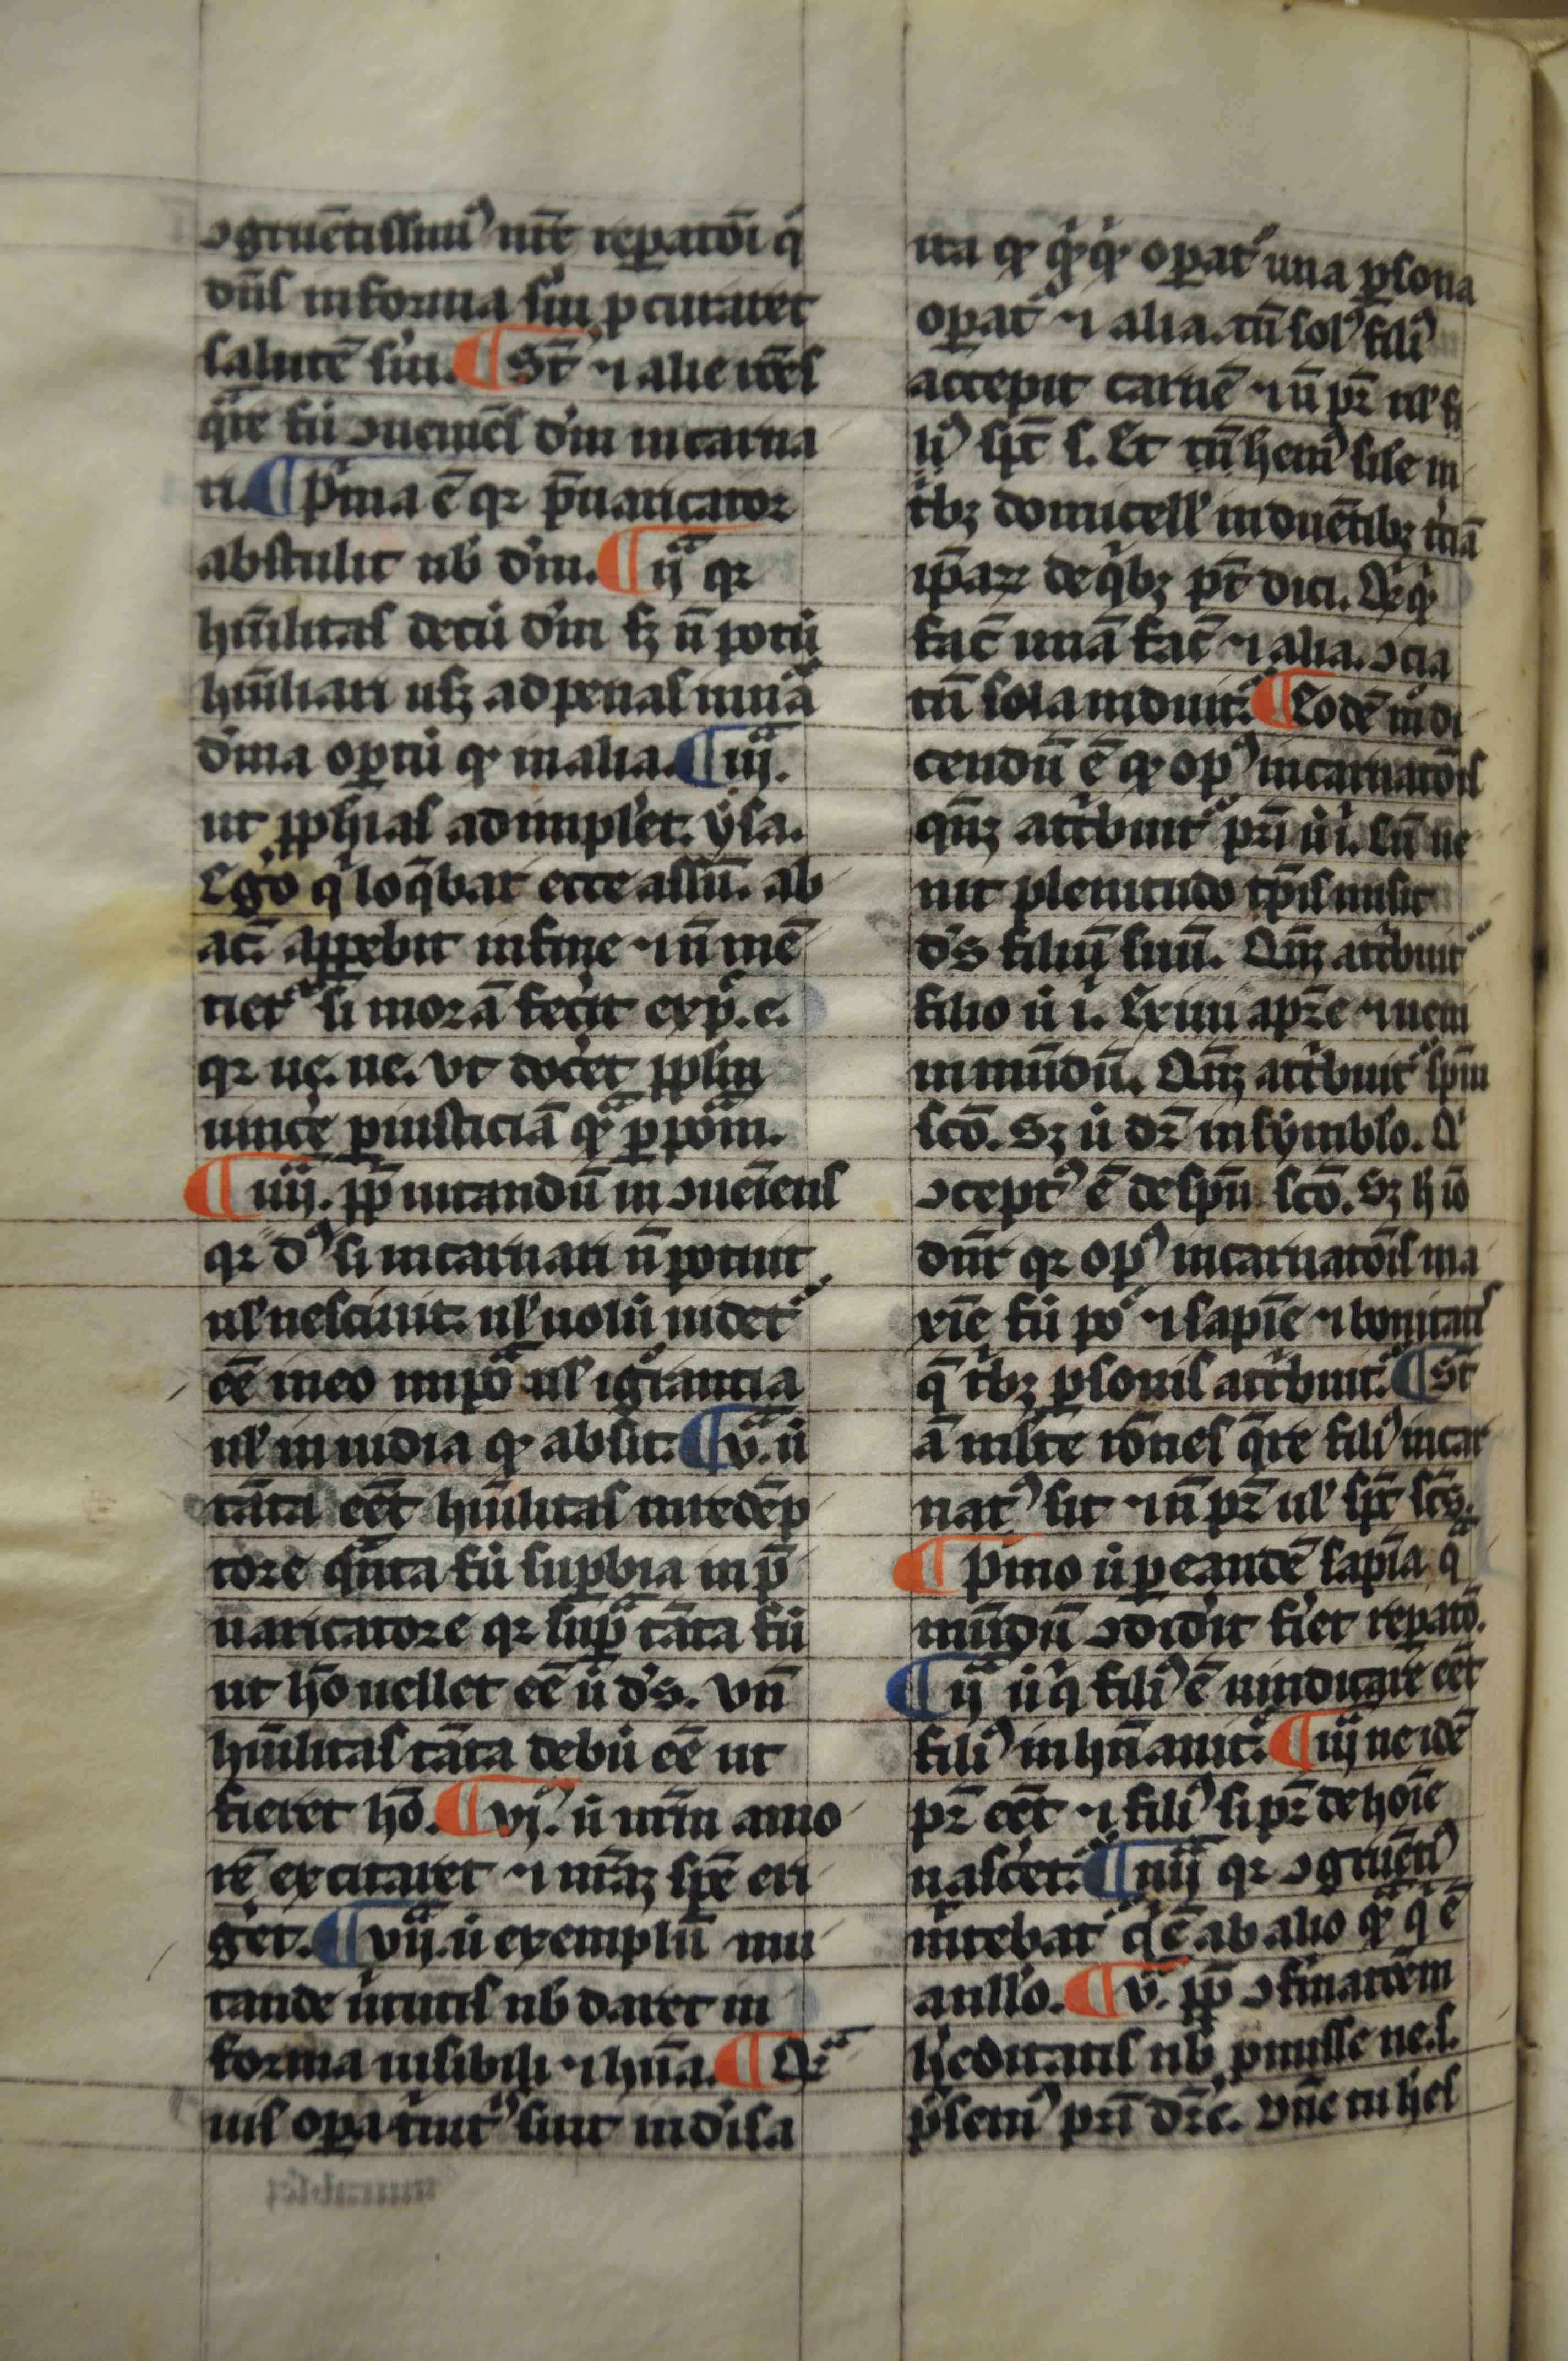 ↄgruētissimꝰ nr̄e reꝑatōi q́
dn̄s in forma sui ꝓcuraret
salutē sui. ¶ Sт̄ ⁊ alie rōes
qͣre fuͥ ↄueniēs dm̄ incarna
ri. ¶ Pͥma ē qꝛ p̄uaricator
abstulit nob̄ dm̄. ¶ ijͣ qꝛ
hūilitas decuͥ dm̄ sꝫ n̄ potuͥ
hūiliari usqꝫ ad penas in nrͣā
dm̄a oꝑtuͥ ꝙ in alia. ¶ iijͣ.
ut ꝓph̄ias adimpleͣt. ysa.
Ego qͥ loq̄bar ecce assū. ab
ac̄. apꝑebit in fine ⁊ n̄ mē
tietᷣ si morā fecͥit exp̄. e.
qꝛ ue. ue. ut docͤet ꝓpl̄m
uincͤe ꝑ iusticiā qͣꝫ ꝑ potͣm.
¶ iiij. ꝓp̄ uitandū inↄueniēns
qꝛ dꝰ si incarnari n̄ potuit
ul̄ nesciuit. ul̄ noluͥ uidetᷣ
eē in eo impōͣ ul̄ igͦrancia
ul̄ inuidia ꝙ absit. ¶ v.ͣ ꝟ
tāta eēt hūilitas in redēp
tore qͣnta fuͥ suꝑbia in p̄
uaricatore qꝛ supͣ tāta fuͥ
ut hō uellet eē ꝟ ds̄. Vn̄
hūilitas tāta debuͥ eē ut
fieret hō. ¶ vj.ͣ ꝟ nrm̄ amo
rē excitaret ⁊ nrāꝫ spē eri
gͤet. ¶ vij.ͣ ꝟ exemplū imi
tande ꝟtutis nob̄ daret in
forma uisibili ⁊ hūa. ¶ Qͣ
uis oꝑa tⁱnitͣ sint indiīsa
ita ꝙ qͥcqͥd oꝑatᷣ una ꝑsona
oꝑatᷣ ⁊ alia. tn̄ solꝰ filiꝰ
accepit carnē ⁊ n̄ pr̄ ul̄ fi
liꝰ spc̄ s. Et tn̄ hemꝰ sil̄e in
tͥbꝫ domicell̄ induētibꝫ tͥciā
ip̄aꝝ de qͥbꝫ pt̄ dici. Qͥcqͥd
fac̄ unā fac̄ ⁊ alia. ↄcia
tn̄ sola induitᷣ. ¶ Eodē mͦ di
cendū ē ꝙ opꝰ incarnatōis
qn̄qꝫ attͥbuitᷣ pr̄i ꝟ i. Cū ue
nit plenitudo tp̄is misit
ds̄ filiū suū. Qn̄qꝫ attͥbuitᷣ
filio ꝟ i. Exiui a pr̄e ⁊ ueni
in mūdū. Qn̄qꝫ attͥbuitᷣ spūi
scō. Sꝫ ꝟ dr̄ in symblo. Qͥ
ↄceptꝰ ē de spū scō. Sꝫ h̄ iō
dn̄t qꝛ opꝰ incarnatōis ma
xīe fuͥ poͣ ⁊ sapīe ⁊ bonitatis
q̄ tͥbꝫ ꝑsonis attͥbuitᷣ. ¶ St̄
ā mlt̄e rōnes qͣre filiꝰ incar
natꝰ sit ⁊ n̄ pr̄ ul̄ spc̄ scs̄.
¶ Pͥmo ꝟ ꝑ eandē sapīa qͣ
mūdū ↄdidit fiͤet reꝑatō.
¶ ijͣ ꝟ qͥ filiꝰ ē uindicare eēt
filiꝰ in hn̄anitͣ. ¶ iijͣ ne idē
pr̄ eēt ⁊ filiꝰ si pr̄ de hoīe
nascͤetᷣ. ¶ iiijͣ qꝛ ↄgruētiꝰ
mͥtebatᷣ qͥ ē ab alio qͣꝫ qͥ ē
a nullo. ¶ v.ͣ ꝓp̄ ↄfͥmatōem
hͤeditatis nob̄ ꝓmisse ne. s.
p̄semꝰ pr̄i dr̄c̄. Vn̄e tu hes